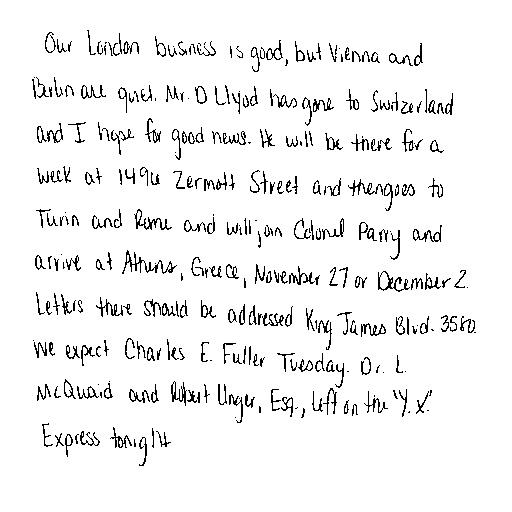 Our London business is good, but Vienna and
Berlin are quiet. Mr. D Llyod has gone to Switzerland
and I hope for good news. He will be there for a
week at 1496 Zermott Street and then goes to
Turin and Rome and will join Colonel Parry and
arrive at Athens, Greece, November 27 or December 2.
Letters there should be addressed King James Blvd. 3580.
We expect Charles E. Fuller Tuesday. Dr. L
McQuaid and Robert Unger, Esq., left on the "Y.X."
Express tonight